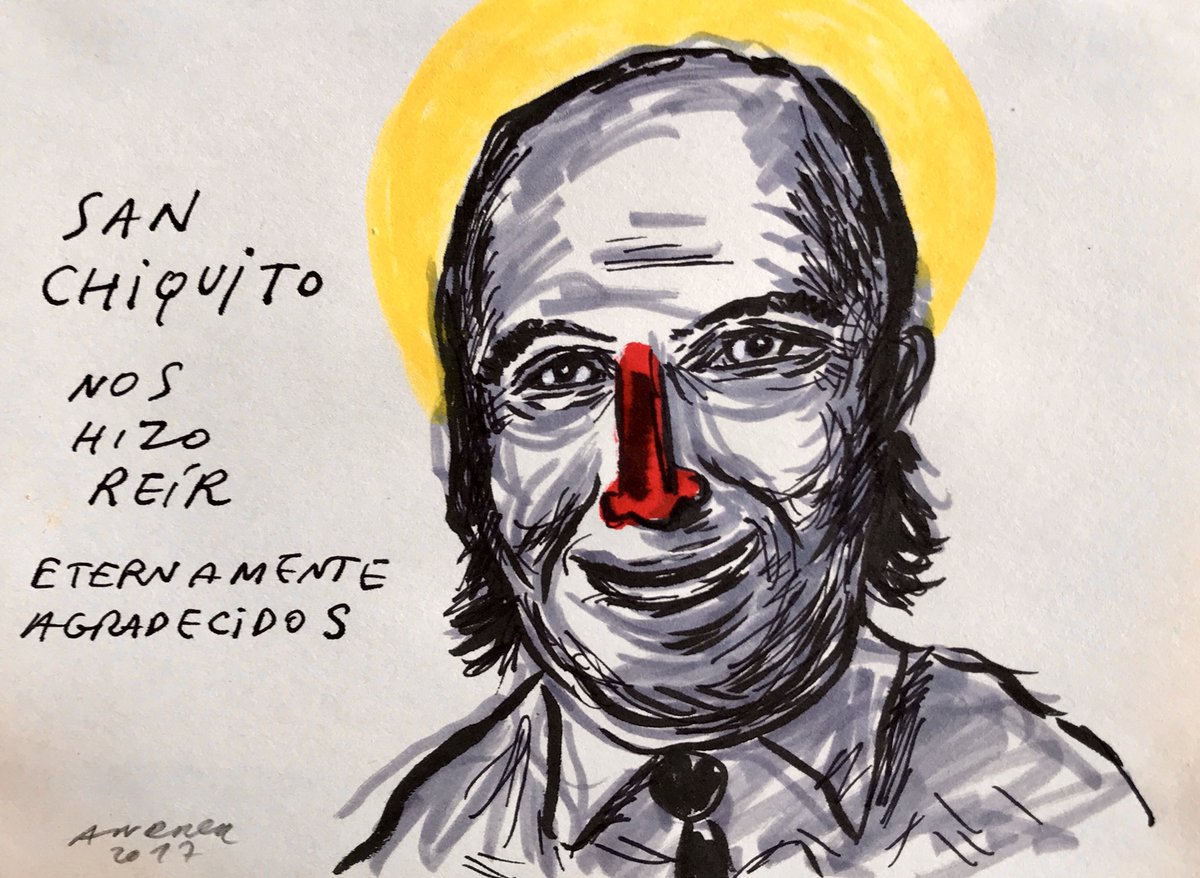 SAN
CHIQUITO
NOS
HIZO
REÍR
ETERNAMENTE
AGRADECIDOS
2017